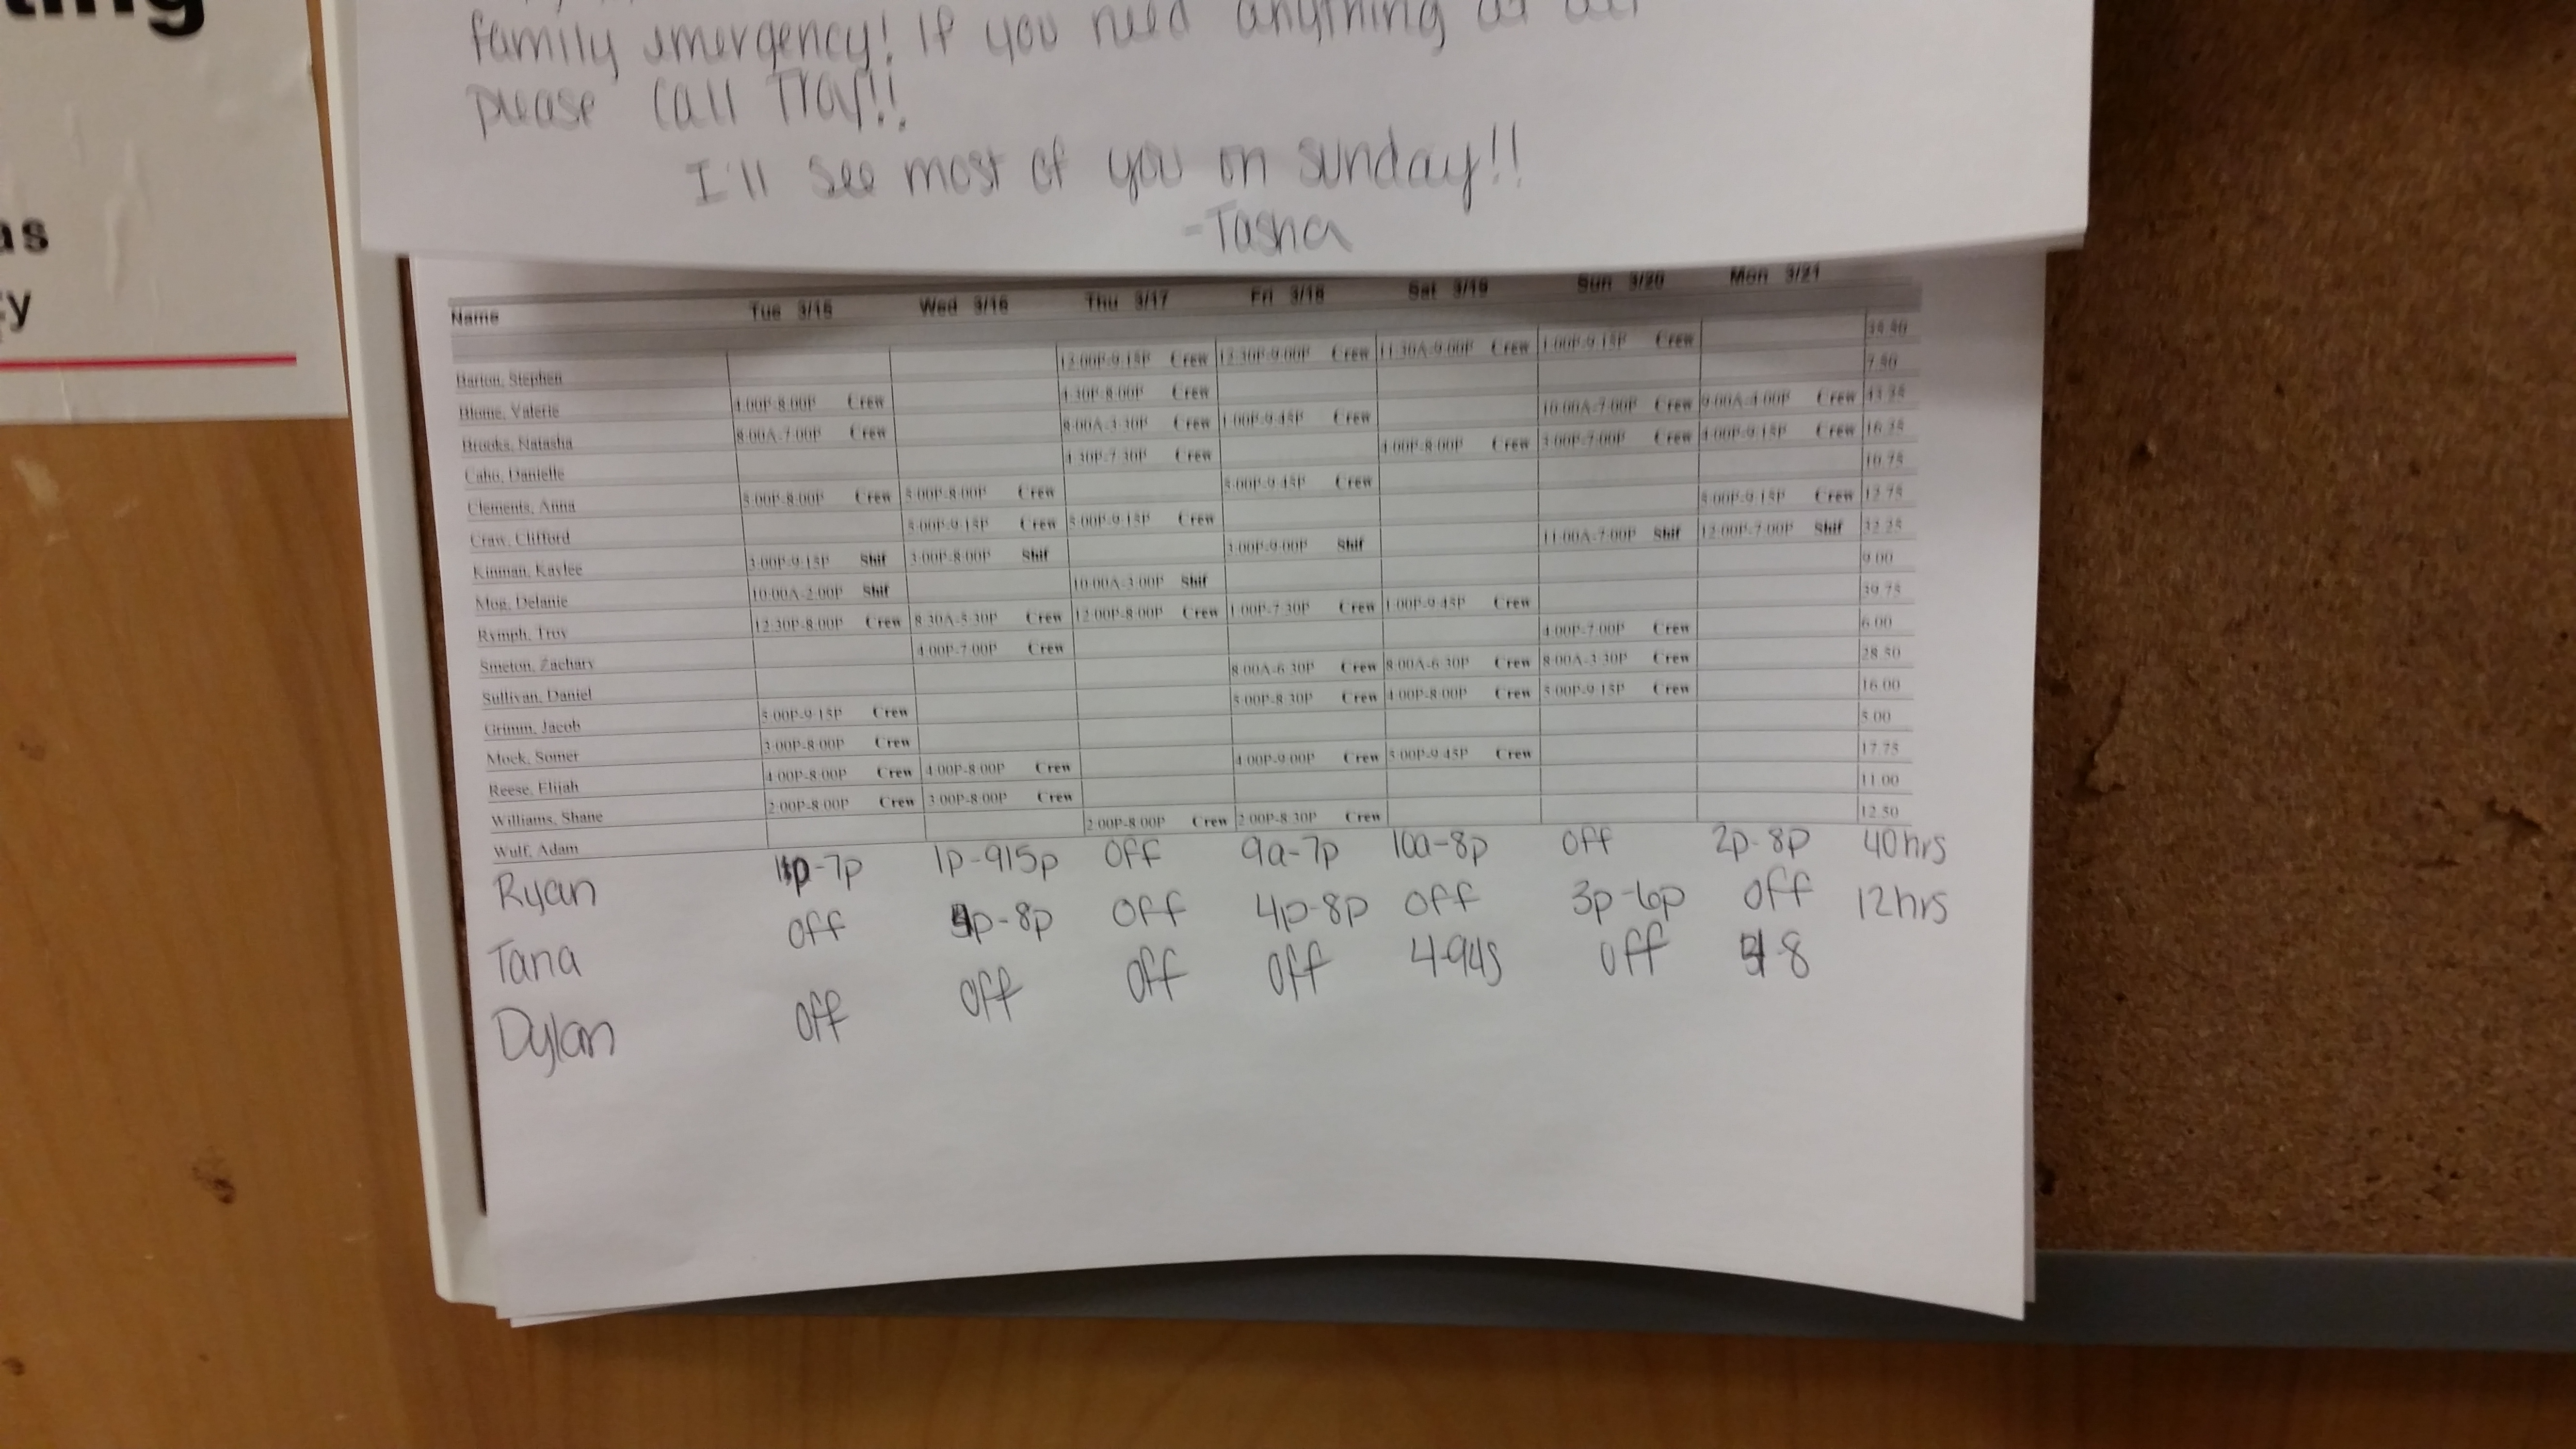 ting
as
ty
family emergency! If you need anything at all
please call Troy!!
I'll see most of you on sunday!!
-Tasha
Name Tue 3/15 Wed 3/16 Thu 3/17 Fri 3/18 Sat 3/19 Sun 3/20 Mon 3/21
Barton, Stephen 12:00P-9:15P Crew 12:30P-9:00P Crew 11:30A-9:00P Crew 1:00P-9:15P Crew 35.50
Blume, Valerie 4:00P-8:00P Crew 4:30P-8:00P Crew 7.50
Brooks, Natasha 8:00A-7:00P Crew 8:00A-3:30P Crew 1:00P-9:45P Crew 10:00A-7:00P Crew 9:00A-4:00P Crew 43.25
Danielle 4:30P-7:30P Crew 4:00P-8:00P Crew 3:00P-7:00P Crew 4:00P-9:15P Crew 16.25
Clements, Anna 5:00P-8:00P Crew 5:00P-8:00P Crew 5:00P-9:45P Crew 10.75
Craw, Clifford 5:00P-9:15P Crew 5:00P-9:15P Crew 5:00P-9:15P Crew 12.75
Kinman, Kaylee 3:00P-9:15P Shif 3:00P-8:00P Shif 3:00P-9:00P Shif 11:00A-7:00P Shif 12:00P-7:00P Shif 32.25
Mog, Delanie 10:00A-2:00P Shif 10:00A-3:00P Shif 9.00
Rymph, Troy 12:30P-8:00P Crew 8:30A-5:30P Crew 12:00P-8:00P Crew 1:00P-7:30P Crew 1:00P-9:45P Crew 39.75
Smeton, Zachary 4:00P-7:00P Crew 4:00P-7:00P Crew 6.00
Sullivan, Daniel 8:00A-6:30P Crew 8:00A-6:30P Crew 8:00A-3:30P Crew 28.50
Grimm, Jacob 5:00P-9:15P Crew 5:00P-8:30P Crew 4:00P-8:00P Crew 5:00P-9:15P Crew 16.00
Mock, Somer 3:00P-8:00P Crew 5.00
Reese, Elijah 4:00P-8:00P Crew 4:00P-8:00P Crew 4:00P-9:00P Crew 5:00P-9:45P Crew 17.75
Williams, Shane 2:00P-8:00P Crew 3:00P-8:00P Crew 11.00
Wulf, Adam 2:00P-8:00P Crew 2:00P-8:30P Crew 12.50
Ryan 1p-7p 1p-915p Off 9a-7p 10a-8p Off 2p-8p 40hrs
Tana Off p-8p Off 4p-8p Off 3p-6p Off 12hrs
Dylan Off Off Off Off 4-945 Off -8